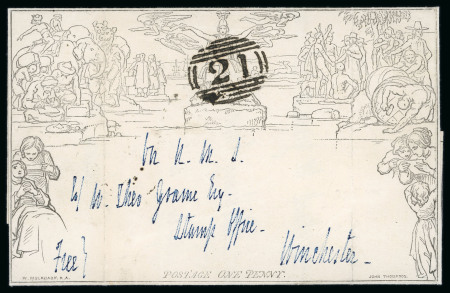 21
On H. M. S.
W. Theo Grame Esq.
Stamp Office.
Winchester.
Free}
POSTAGE ONE PENNY.
W. MULREADY, R.A.
JOHN THOMPSON